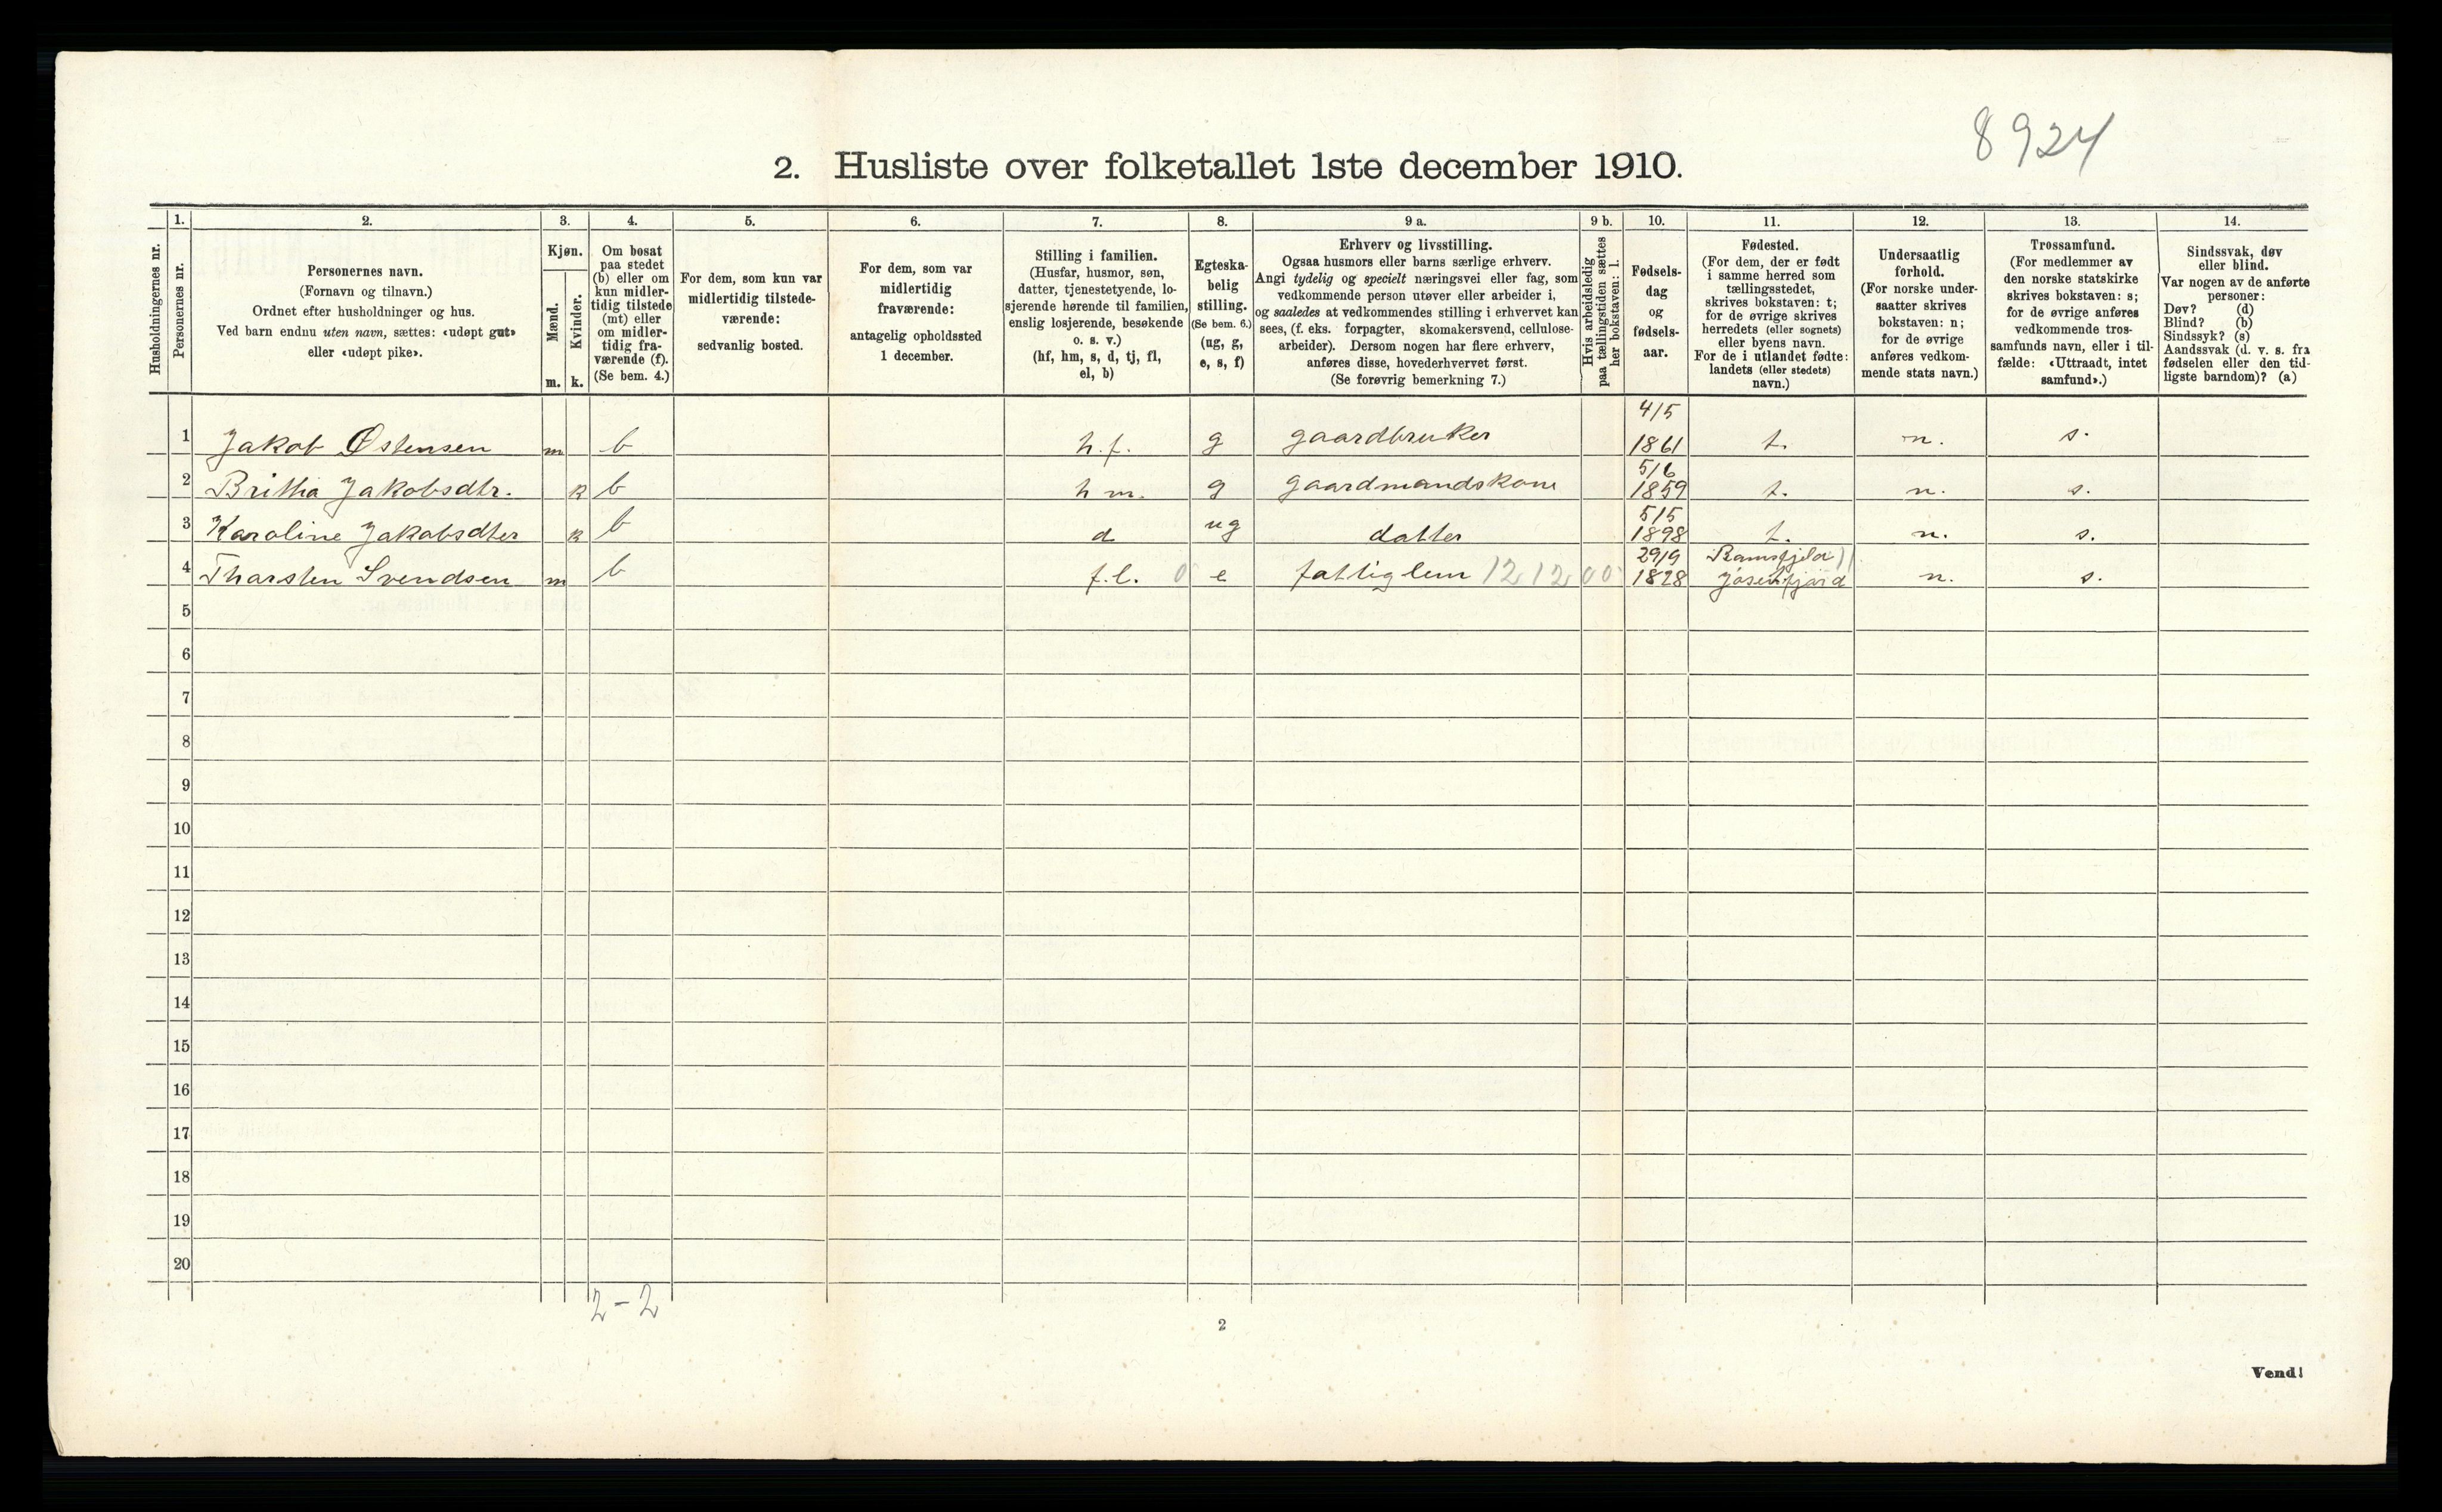 8924
2. Husliste over folketallet 1ste december 1910.
Husholdningernes nr.
1.
Personernes nr.
2.
Personernes navn.
(Fornavn og tilnavn.)
Ordnet efter husholdninger og hus.
Ved barn endnu uten navn, sættes: «udøpt gut»
eller «udøpt pike».
3.
Kjøn.
Mænd.
Kvinder.
m. k.
4.
Om bosat
paa stedet
(b) eller om
kun midler-
tidig tilstede
(mt) eller
om midler-
tidig fra-
værende (f).
(Se bem. 4.)
5.
For dem, som kun var
midlertidig tilstede-
værende:
sedvanlig bosted.
6.
For dem, som var
midlertidig
fraværende:
antagelig opholdssted
1 december.
7.
Stilling i familien.
(Husfar, husmor, søn,
datter, tjenestetyende, lo-
sjerende hørende til familien,
enslig losjerende, besøkende
o. s. v.)
(hf, hm, s, d, tj, fl,
el, b)
8.
Egteska-
belig
stilling.
(Se bem. 6.)
(ug, g,
e, s, f)
9 a.
Erhverv og livsstilling.
Ogsaa husmors eller barns særlige erhverv.
Angi tydelig og specielt næringsvei eller fag, som
vedkommende person utøver eller arbeider i,
og saaledes at vedkommendes stilling i erhvervet kan
sees, (f. eks. forpagter, skomakersvend, cellulose-
arbeider). Dersom nogen har flere erhverv,
anføres disse, hovederhvervet først.
(Se forøvrig bemerkning 7.)
9 b.
Hvis arbeidsledig
paa tællingstiden sættes
her bokstaven: l.
10.
Fødsels-
dag
og
fødsels-
aar.
11.
Fødested.
(For dem, der er født
i samme herred som
tællingsstedet,
skrives bokstaven: t;
for de øvrige skrives
herredets (eller sognets)
eller byens navn.
For de i utlandet fødte:
landets (eller stedets)
navn.)
12.
Undersaatlig
forhold.
(For norske under-
saatter skrives
bokstaven: n;
for de øvrige
anføres vedkom-
mende stats navn.)
13.
Trossamfund.
(For medlemmer av
den norske statskirke
skrives bokstaven: s;
for de øvrige anføres
vedkommende tros-
samfunds navn, eller i til-
fælde: «Uttraadt, intet
samfund».)
14.
Sindssvak, døv
eller blind.
Var nogen av de anførte
personer:
Døv? (d)
Blind? (b)
Sindssyk? (s)
Aandssvak (d. v. s. fra
fødselen eller den tid-
ligste barndom)? (a)
1 Jakob Østensen m b h.f. g gaardbruker 4/5 1861 t. n. s.
2 Britha Jakobsdtr. k b h m. g gaardmandskone 5/6 1859 t. n. s.
3 Karoline Jakobsdter k b d ug datter 5/5 1898 t. n. s.
4 Tharsten Svendsen m b f.l. 0 e fattiglem 1212 00 29/9 1828 n. s.
5
6
7
8
9
10
11
12
13
14
15
16
17
18
19
20
2-2
2
Vend!